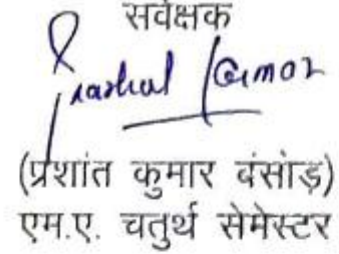 सर्वेक्षक
Prashant Kumar
(प्रशांत कुमार बंसोड़)
एम.ए. चतुर्थ सेमेस्टर